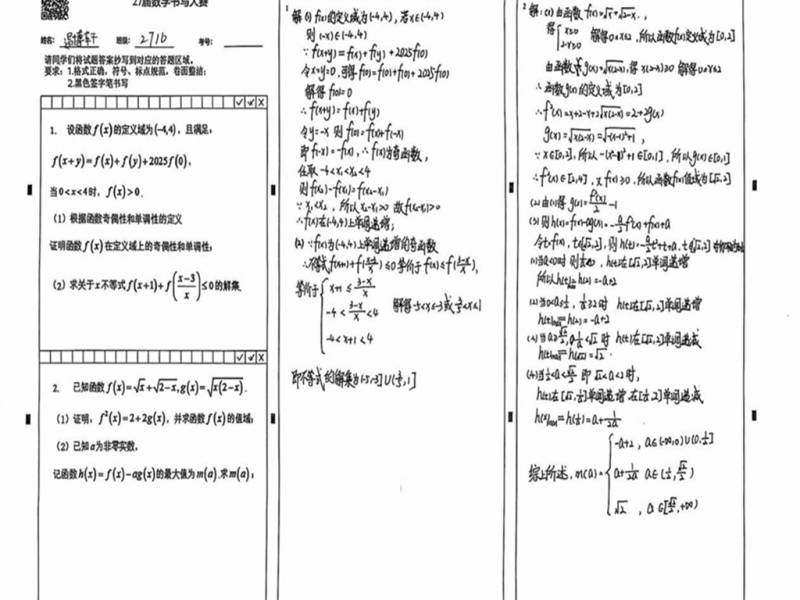 27届数学书写大赛
姓名：
班级：2716
考号：
请同学们将试题答案抄写到对应的答题区域。
要求：1.格式正确，符号、标点规范，卷面整洁；
2.黑色签字笔书写
1. 设函数f(x)的定义域为(-4,4)，且满足：
f(x+y)=f(x)+f(y)+2025f(0)，
当0<x<4时，f(x)>0.
（1）根据函数奇偶性和单调性的定义
证明函数f(x)在定义域上的奇偶性和单调性；
（2）求关于x不等式f(x+1)+f((x-3)/x)≤0的解集.
2. 已知函数f(x)=√x+√(2-x),g(x)=√(x(2-x)).
（1）证明：f²(x)=2+2g(x)，并求函数f(x)的值域；
（2）已知a为非零实数，
记函数h(x)=f(x)-ag(x)的最大值为m(a).求m(a)；
1
解 (1) f(x)的定义域为(-4,4)，若x∈(-4,4)
则 (-x)∈(-4,4)
∵f(x+y)=f(x)+f(y)+2025f(0)
令x=y=0,可得f(0)=f(0)+f(0)+2025f(0)
解得f(0)=0
∴f(x+y)=f(x)+f(y)
令y=-x 则f(0)=f(x)+f(-x)
即f(-x)=-f(x),∴f(x)为奇函数,
任取-4<x₁<x₂<4
则f(x₂)-f(x₁)=f(x₂-x₁)
∵x₁<x₂，所以x₂-x₁>0 故f(x₂-x₁)>0
∴f(x)在(-4,4)上单调递增；
(2) ∵f(x)为(-4,4)上单调递增的奇函数
∴不等式f(x+1)+f((x-3)/x)≤0等价于f(x+1)≤f((3-x)/x),
等价于{x+1≤(3-x)/x
-4<(3-x)/x<4 解得-5<x≤-3或3/5<x≤1
-4<x+1<4
即不等式的解集为(-5,-3]∪(3/5,1]
2
解：(1)由函数f(x)=√x+√(2-x),
得{x≥0
2-x≥0 解得0≤x≤2,所以函数f(x)定义域为[0,2]
由函数g(x)=√(x(2-x)),得x(2-x)≥0 解得0≤x≤2
∴函数g(x)的定义域为[0,2]
∴f²(x)=x+2-x+2√(x(2-x))=2+2g(x)
g(x)=√(x(2-x))=√(-(x-1)²+1),
∵x∈[0,2],所以-(x-1)²+1∈[0,1],所以g(x)∈[0,1]
∴f²(x)∈[2,4],又f(x)≥0,所以函数f(x)值域为[√2,2]
(2)由(1)得g(x)=f²(x)/2-1
(3)则h(x)=f(x)-ag(x)=-a/2f²(x)+f(x)+a
令t=f(x),t∈[√2,2],则h(t)=-a/2t²+t+a,t∈[√2,2]
(1)当a<0时 h(t)在[√2,2]单调递增
所以h(t)max=h(2)=-a+2
(2)当0<a≤1/2,1/a≥2时 h(t)在[√2,2]单调递增
h(t)max=h(2)=-a+2
(3)当a≥√2/2,0<1/a≤√2时 h(t)在[√2,2]单调递减
h(t)max=h(√2)=√2
(4)当1/2<a<√2/2 即√2<1/a<2时,
h(t)在[√2,1/a]单调递增 在[1/a,2]单调递减
h(x)max=h(1/a)=a+1/2a
综上所述,m(a)={-a+2,a∈(-∞,0)∪(0,1/2]
a+1/2a a∈(1/2,√2/2)
√2,a∈[√2/2,+∞)